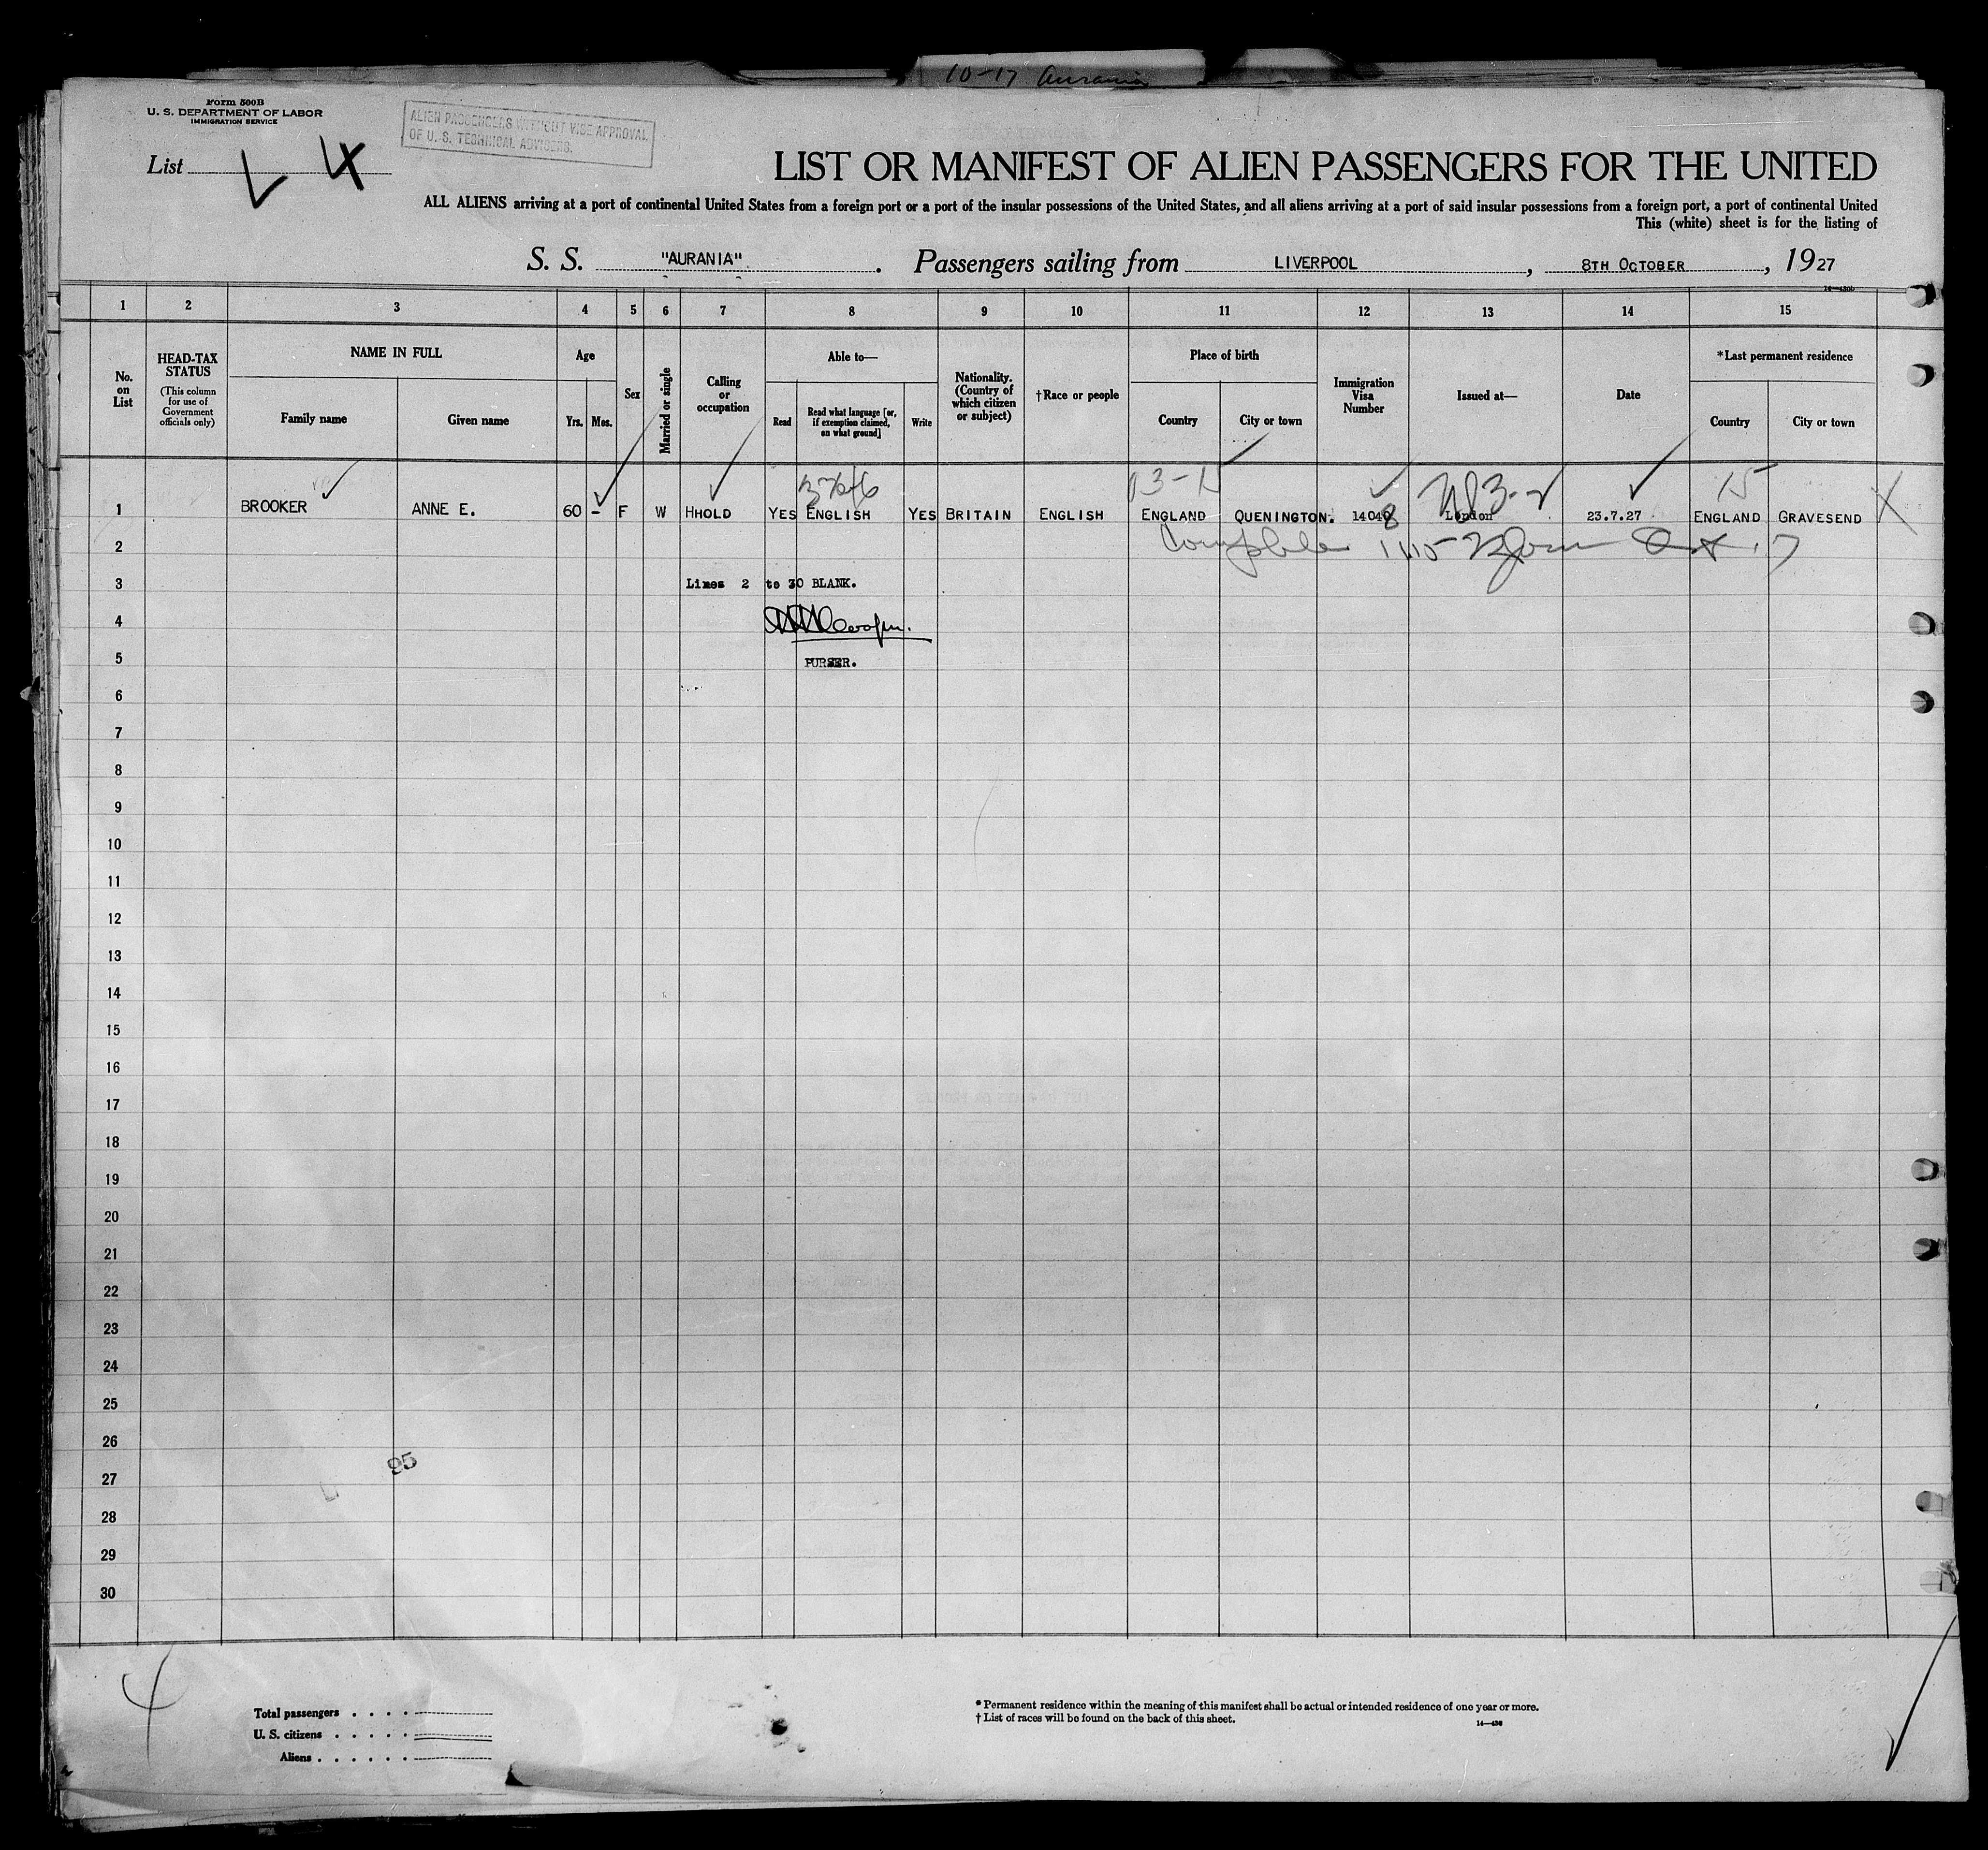 10-17 Aurania
Form 500B
U. S. DEPARTMENT OF LABOR
IMMIGRATION SERVICE
ALIEN PASSENGERS WITHOUT VISE APPROVAL
OF U. S. TECHNICAL ADVISERS.
List 4
LIST OR MANIFEST OF ALIEN PASSENGERS FOR THE UNITED
ALL ALIENS arriving at a port of continental United States from a foreign port or a port of the insular possessions of the United States, and all aliens arriving at a port of said insular possessions from a foreign port, a port of continental United
This (white) sheet is for the listing of
S. S. "AURANIA". Passengers sailing from LIVERPOOL, 8TH OCTOBER, 1927
1 2 3 4 5 6 7 8 9 10 11 12 13 14 15
No. on List
HEAD-TAX STATUS
(This column for use of Government officials only)
NAME IN FULL
Family name
Given name
Age
Yrs. Mos.
Sex
Married or single
Calling or occupation
Able to—
Read
Read what language [or, if exemption claimed, on what ground]
Write
Nationality. (Country of which citizen or subject)
†Race or people
Place of birth
Country
City or town
Immigration Visa Number
Issued at—
Date
*Last permanent residence
Country
City or town
13-1 15
1 BROOKER ANNE E. 60 - F W HHOLD YES ENGLISH YES BRITAIN ENGLISH ENGLAND QUENINGTON. 14048 London 23.7.27 ENGLAND GRAVESEND
2
3 Lines 2 to 30 BLANK.
4
5 PURSER.
6
7
8
9
10
11
12
13
14
15
16
17
18
19
20
21
22
23
24
25
26
27
95
28
29
30
4
Total passengers
U. S. citizens
Aliens
* Permanent residence within the meaning of this manifest shall be actual or intended residence of one year or more.
† List of races will be found on the back of this sheet.